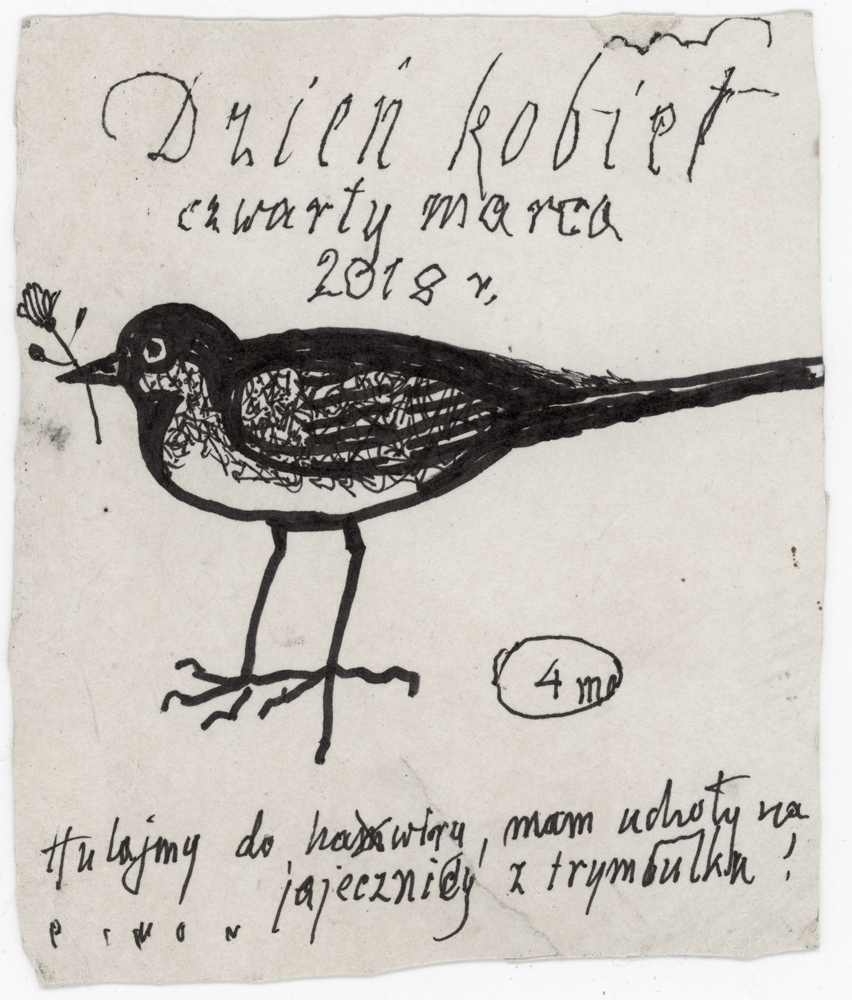 Dzień kobiet
czwarty marca
2018 r.
4 ma
Hulajmy do, mam uchoty na
jajecznicy z trymbulku!
P i w o n